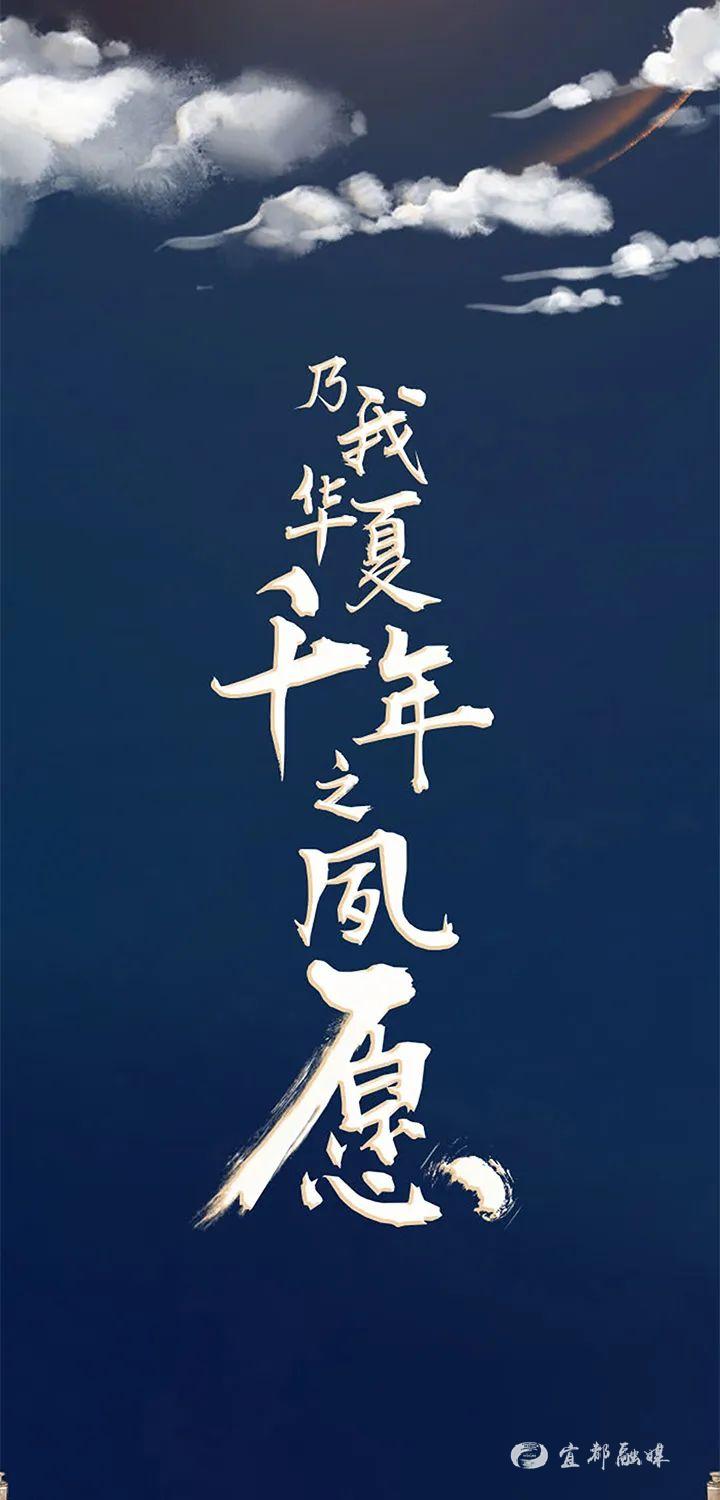 乃我华夏千年之夙愿
宜都融媒